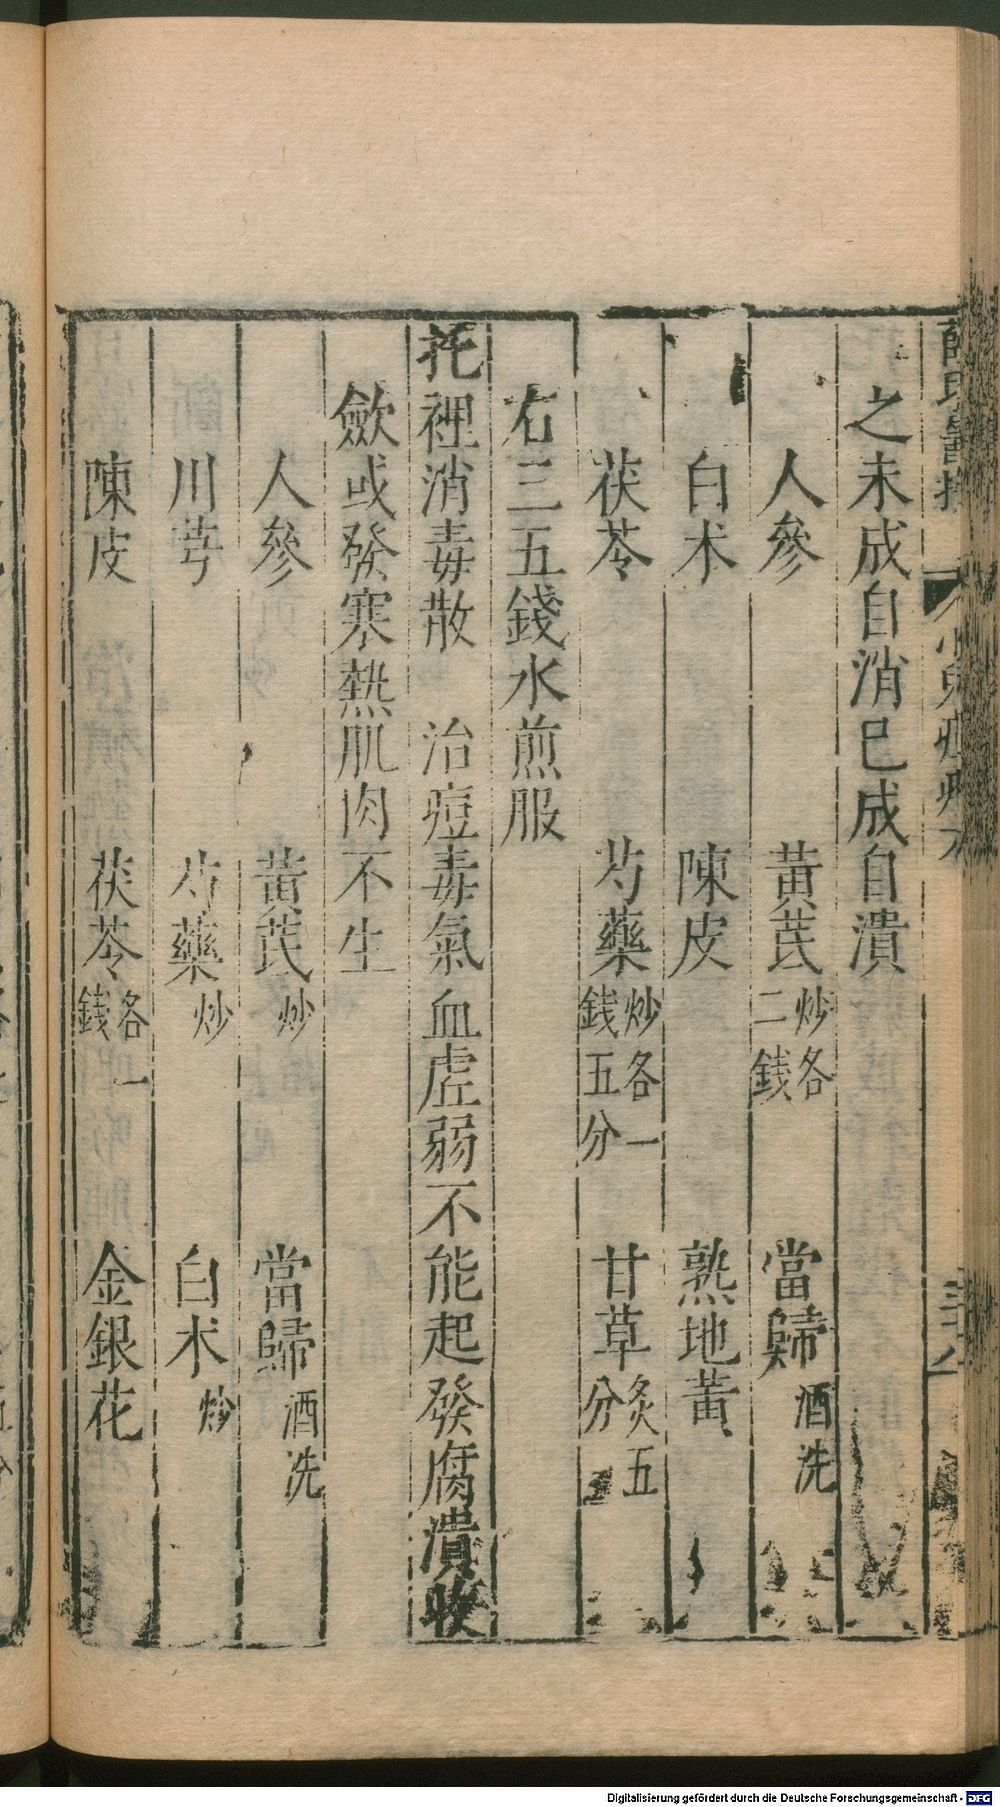 之未成自消已成自潰
人參 黃芪炒各二錢 當歸酒洗
白朮 陳皮 熟地黃
茯苓 芍藥炒各一錢五分 甘草炙五分
右三五錢水煎服
托裡消毒散 治痘毒氣血虛弱不能起發腐潰收
斂或發寒熱肌肉不生
人參 黃芪炒 當歸酒洗
川芎 芍藥炒 白朮炒
陳皮 茯苓各一錢 金銀花
Digitalisierung gefördert durch die Deutsche Forschungsgemeinschaft - DFG